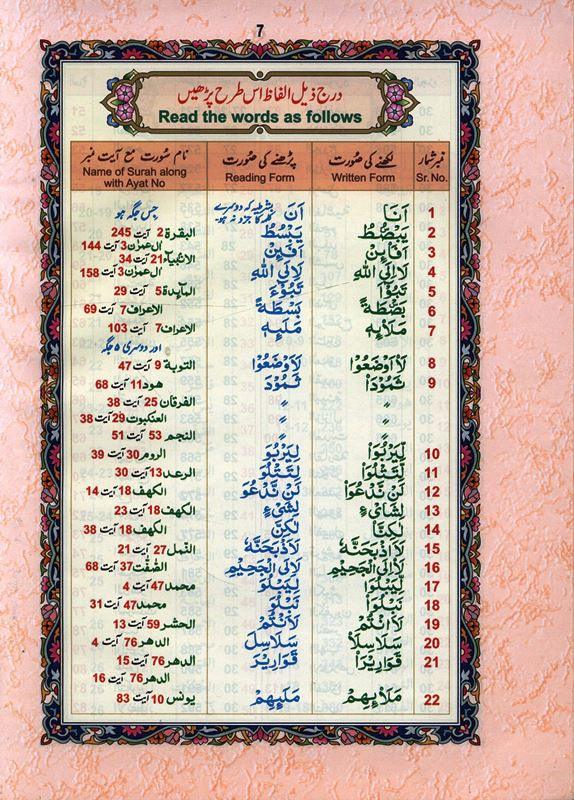 7
درج ذیل الفاظ اس طرح پڑھیں
Read the words as follows
نمبر شمار لکھنے کی صورت پڑھنے کی صورت نام سُورت مع آیت نمبر
Sr. No. Written Form Reading Form Name of Surah along with Ayat No
1 اَنَا اَنَ بشرطیکہ دوسرے کلمہ کا جزو نہ ہو۔ جس جگہ ہو
2 يَبْصُۜطُ يَبْسُطُ البقرة 2 آیت 245
3 اَفَا۟ئِنْ اَفَئِنْ اٰل عمرٰن 3 آیت 144
الانبیاء 21 آیت 34
4 لَا۟اِلَى اللّٰهِ لَاِلَى اللّٰهِ اٰل عمرٰن 3 آیت 158
5 تَبُوْٓاَ۟ تَبُوْٓءَ المآىِٕدة 5 آیت 29
6 بَصْۜطَةً بَسْطَةً الاعراف 7 آیت 69
7 مَلَا۟ئِهٖ مَلَئِهٖ الاعراف 7 آیت 103
اور دوسری ۵ جگہ
8 لَا۟اَوْضَعُوْا لَاَوْضَعُوْا التوبة 9 آیت 47
9 ثَمُوْدَا۟ ثَمُوْدَ هود 11 آیت 68
〃 〃 الفرقان 25 آیت 38
〃 〃 العنكبوت 29 آیت 38
〃 〃 النجم 53 آیت 51
10 لِيَرْبُوَا۟ لِيَرْبُوَ الروم 30 آیت 39
11 لِتَتْلُوَا۟ لِتَتْلُوَ الرعد 13 آیت 30
12 لَنْ نَّدْعُوَا۟ لَنْ نَّدْعُوَ الكهف 18 آیت 14
13 لِشَا۟یْءٍ لِشَیْءٍ الكهف 18 آیت 23
14 لٰكِنَّا۟ لٰكِنَّ الكهف 18 آیت 38
15 لَا۟اَذْبَحَنَّهٗ لَاَذْبَحَنَّهٗ النّمل 27 آیت 21
16 لَا۟اِلَى الْجَحِيْمِ لَاِلَى الْجَحِيْمِ الصّٰفّٰت 37 آیت 68
17 لِيَبْلُوَا۟ لِيَبْلُوَ محمد 47 آیت 4
18 نَبْلُوَا۟ نَبْلُوَ محمد 47 آیت 31
19 لَا۟اَنْتُمْ لَاَنْتُمْ الحشر 59 آیت 13
20 سَلَاسِلَا۟ سَلَاسِلَ الدهر 76 آیت 4
21 قَوَارِيْرَا۟ قَوَارِيْرَ الدهر 76 آیت 15
الدهر 76 آیت 16
22 مَلَا۟ئِهِمْ مَلَئِهِمْ يونس 10 آیت 83